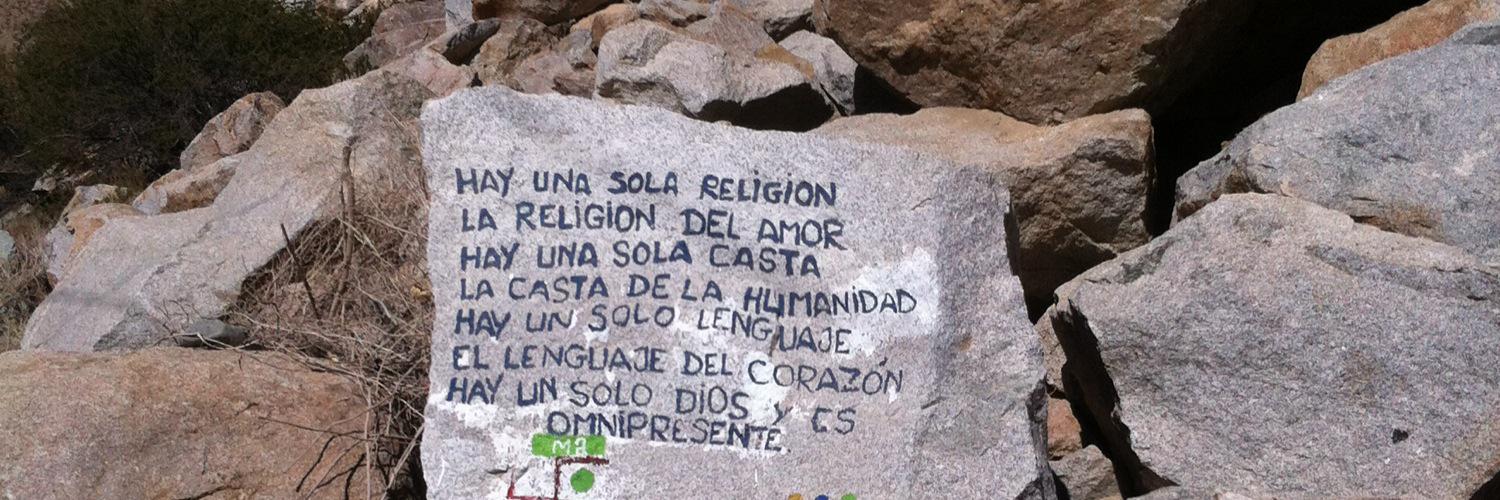 HAY UNA SOLA RELiGiON
LA RELiGiON DEL AMOR
HAY UNA SOLA CASTA
LA CASTA DE LA HUMANiDAD
HAY UN SOLO LENGUAJE
EL LENGUAJE DEL CORAZÓN
HAY UN SOLO DiOS y ES
OMNIPRESENTE